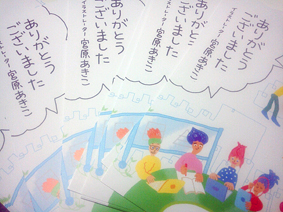 ありがとう
ございました
イラストレーター 宮原あきこ
ありがとう
ございました
イラストレーター 宮原あきこ
ありがとう
ございました
イラストレーター 宮原あきこ
ありがとう
ございました
イラストレーター 宮原あきこ